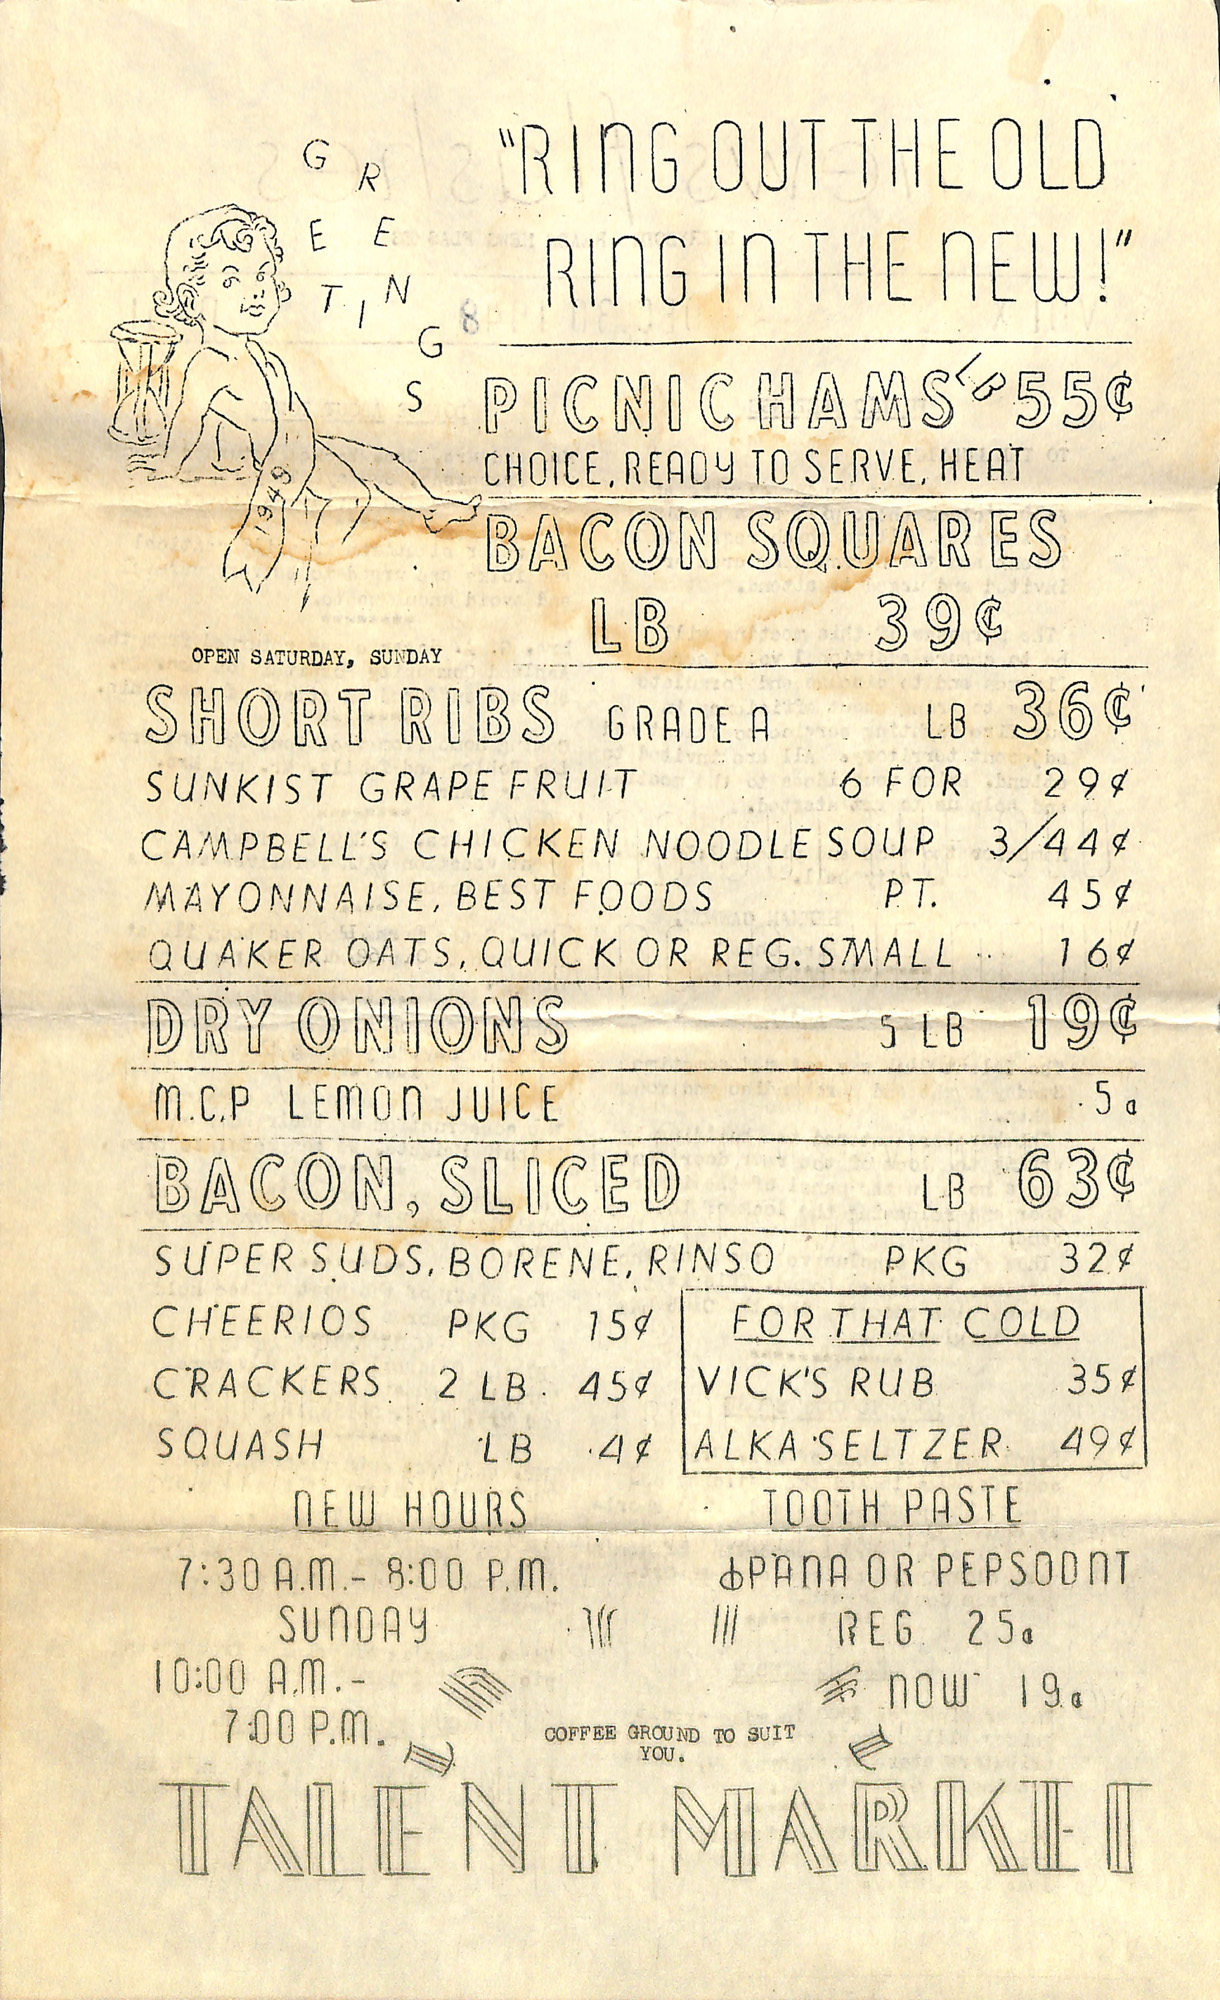 GREETINGS
"RING OUT THE OLD
RING IN THE NEW!"
1949
PICNIC HAMS LB 55¢
CHOICE, READY TO SERVE, HEAT
BACON SQUARES
LB 39¢
OPEN SATURDAY, SUNDAY
SHORT RIBS GRADE A LB 36¢
SUNKIST GRAPEFRUIT 6 FOR 29¢
CAMPBELL'S CHICKEN NOODLE SOUP 3/44¢
MAYONNAISE, BEST FOODS PT. 45¢
QUAKER OATS, QUICK OR REG. SMALL 16¢
DRY ONIONS 5 LB 19¢
M.C.P LEMON JUICE 5¢
BACON, SLICED LB 63¢
SUPER SUDS, BORENE, RINSO PKG 32¢
CHEERIOS PKG 15¢
CRACKERS 2 LB. 45¢
SQUASH LB 4¢
FOR THAT COLD
VICK'S RUB 35¢
ALKA SELTZER 49¢
NEW HOURS
7:30 A.M.- 8:00 P.M.
SUNDAY
10:00 A.M.-
7:00 P.M.
TOOTH PASTE
IPANA OR PEPSODNT
REG 25¢
NOW 19¢
COFFEE GROUND TO SUIT
YOU.
TALENT MARKET